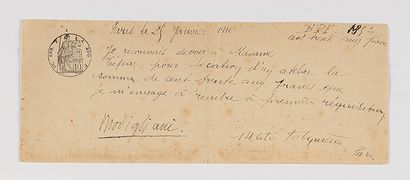 Paris le 25 Janvier 1910
B.P.F. 135 f
cent trente cinq francs
Je reconnais devoir à Madame
pour location d'un atelier la
somme de cent trente cinq francs que
je m'engage à rendre à première requisition
Modigliani.
14 Cité Falguière
Paris